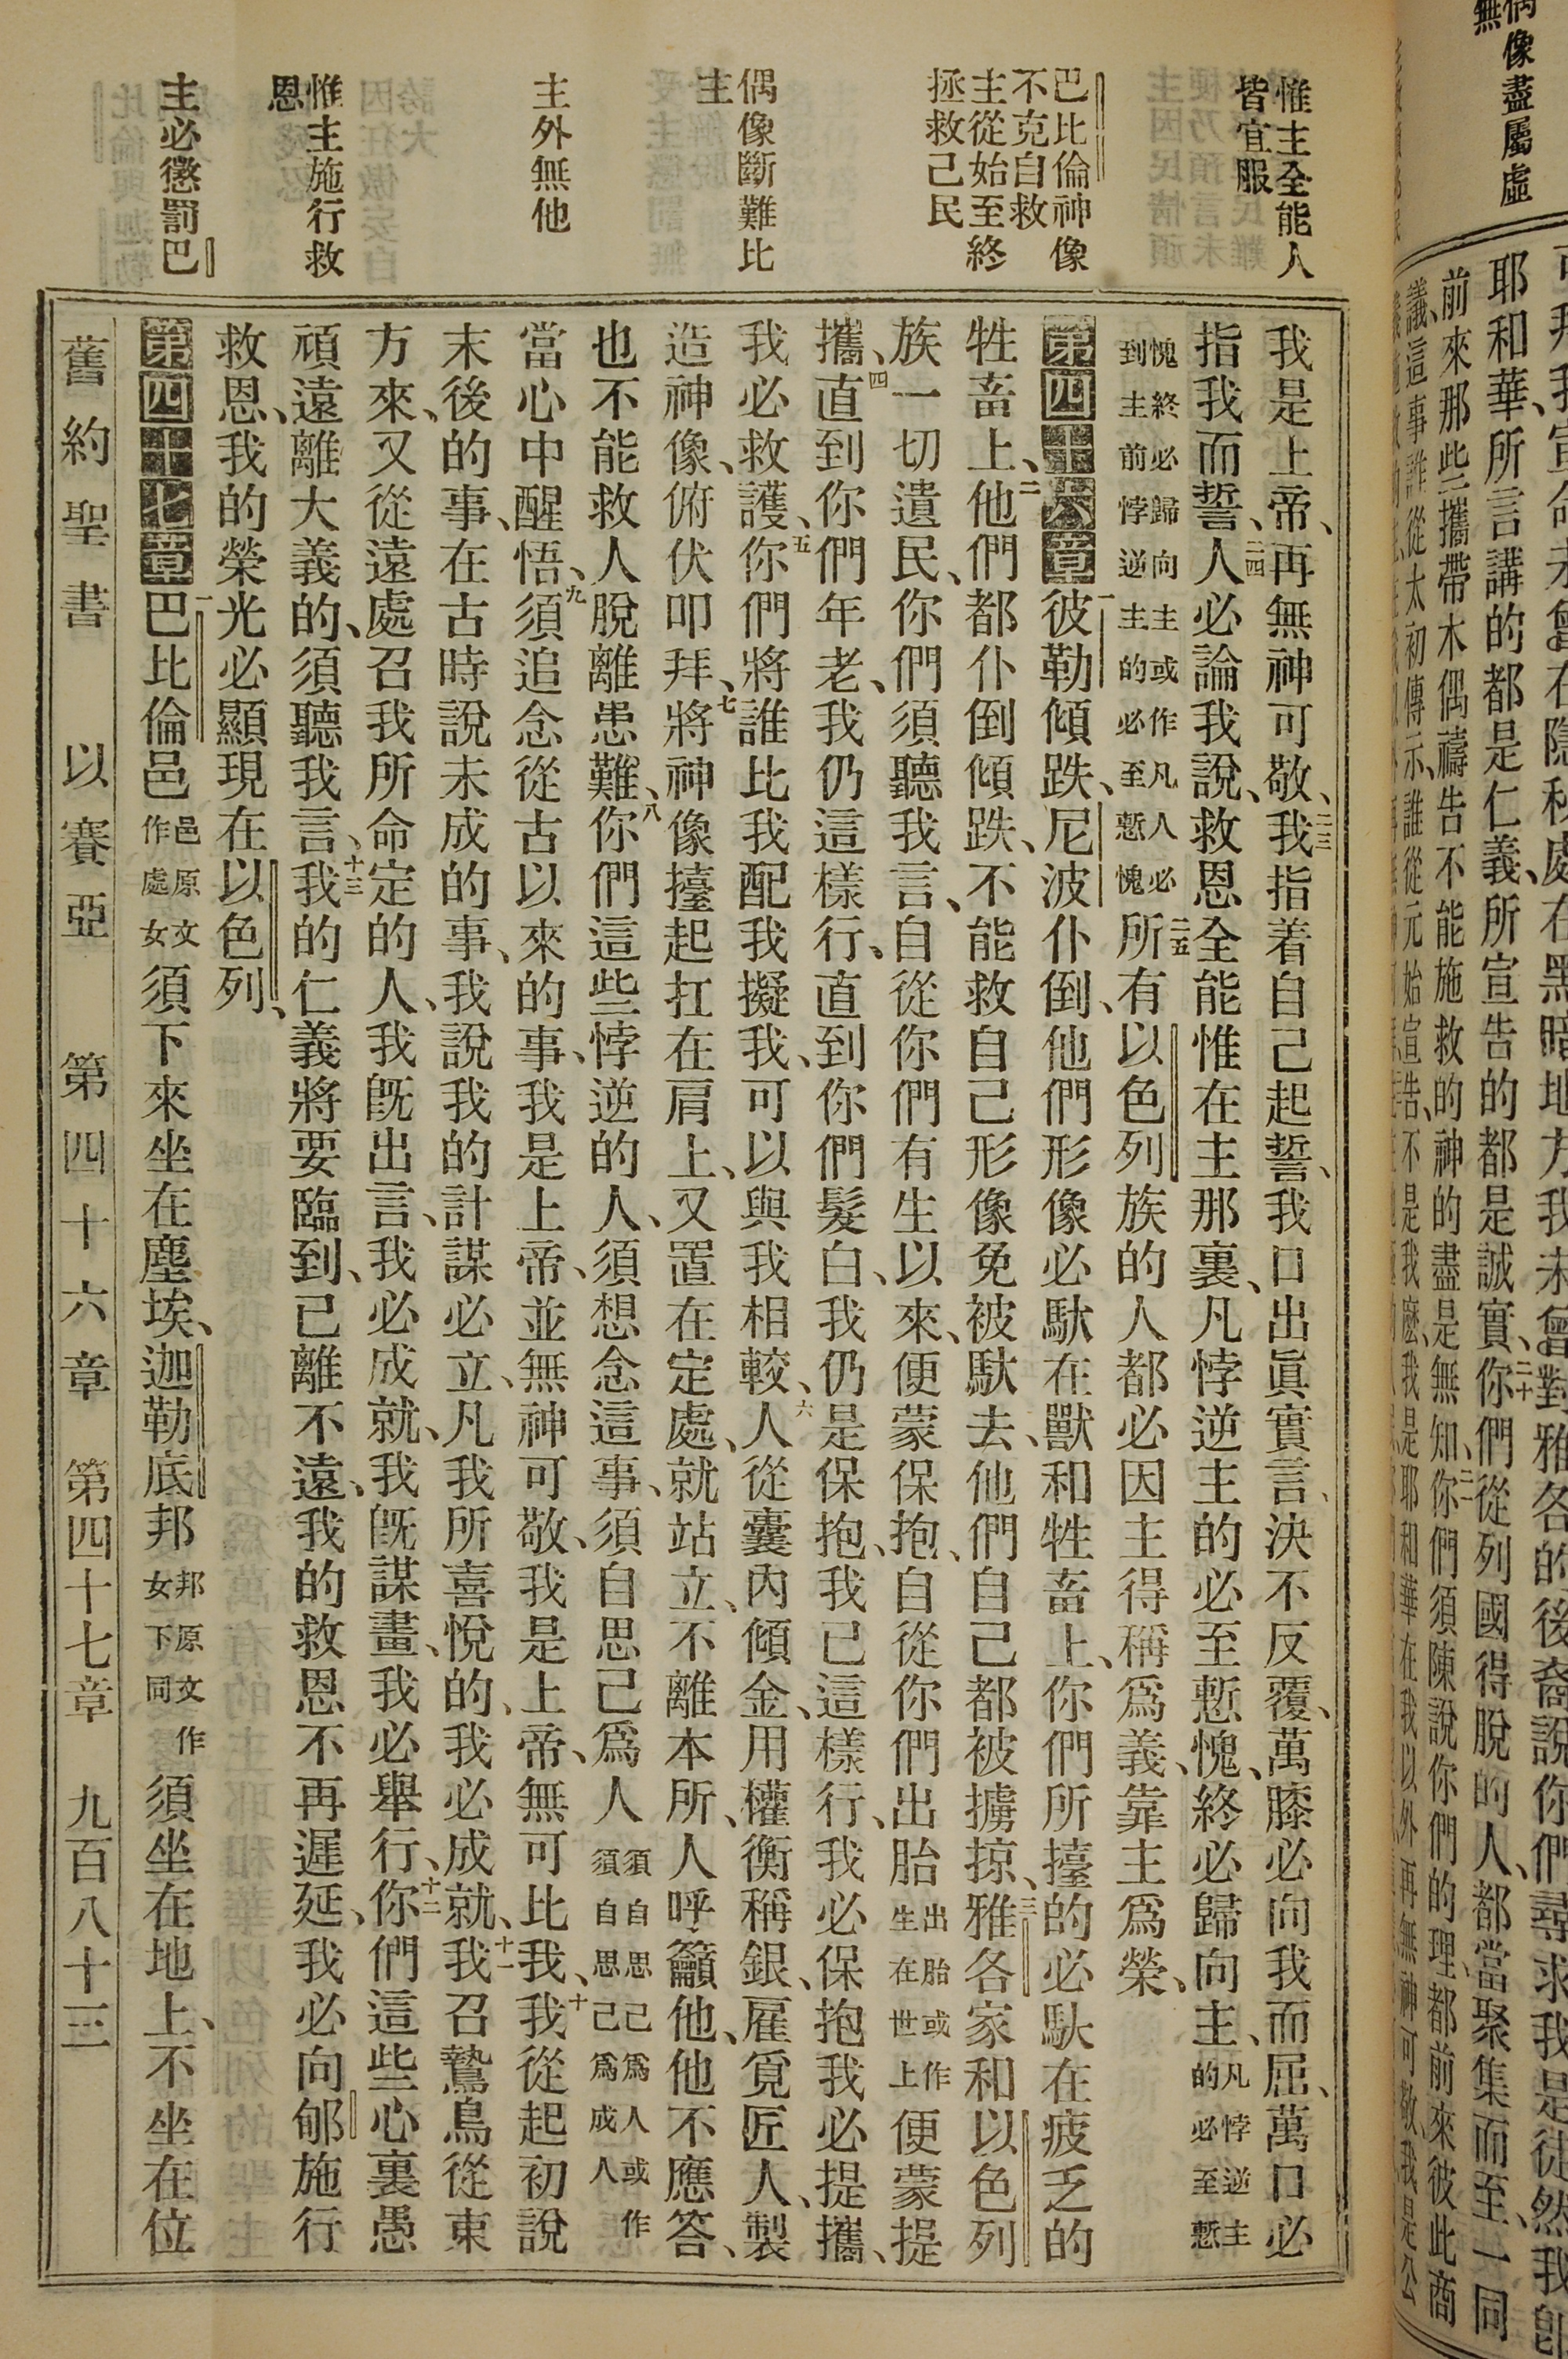 惟主全能人
皆宜服
巴比倫神像
不克自救
主從始至終
拯救己民
偶像斷難比
主
主外無他
惟主施行救
恩
主必懲罰巴
我是上帝、再無神可敬、二三我指着自己起誓、我口出眞實言、決不反覆、萬膝必向我而屈、萬口必
指我而誓、二四人必論我說、救恩全能惟在主那裏、凡悖逆主的必至慙愧、終必歸向主、凡悖逆主的必至慙
愧終必歸向主或作凡人必到主前悖逆主的必至慙愧二五所有以色列族的人都必因主得稱爲義、靠主爲榮、
第四十六章一彼勒傾跌、尼波仆倒、他們形像必馱在獸和牲畜上、你們所擡的必馱在疲乏的
牲畜上、二他們都仆倒傾跌、不能救自己形像免被馱去、他們自己都被擄掠、三雅各家和以色列
族一切遺民、你們須聽我言、自從你們有生以來、便蒙保抱、自從你們出胎出胎或作生在世上便蒙提
攜、四直到你們年老、我仍這樣行、直到你們髮白、我仍是保抱、我已這樣行、我必保抱我必提攜、
我必救護、五你們將誰比我配我擬我、可以與我相較、六人從囊內傾金、用權衡稱銀、雇覓匠人、製
造神像、俯伏叩拜、七將神像擡起扛在肩上、又置在定處、就站立、不離本所、人呼籲他、他不應答、
也不能救人脫離患難、八你們這些悖逆的人、須想念這事、須自思己爲人須自思己爲人或作須自思己爲成人
當心中醒悟、九須追念從古以來的事、我是上帝、並無神可敬、我是上帝、無可比我、十我從起初說
末後的事、在古時說未成的事、我說我的計謀必立、凡我所喜悅的、我必成就、十一我召鷙鳥從東
方來、又從遠處召我所命定的人、我旣出言、我必成就、我旣謀畫、我必舉行、十二你們這些心裏愚
頑遠離大義的、須聽我言、十三我的仁義將要臨到、已離不遠、我的救恩不再遲延、我必向郇施行
救恩、我的榮光必顯現在以色列、
第四十七章一巴比倫邑邑原文作處女須下來坐在塵埃、迦勒底邦邦原文作女下同須坐在地上、不坐在位
舊約聖書 以賽亞 第四十六章 第四十七章 九百八十三
偶像盡屬虛
無
耶和華、所言講的都是仁義、所宣告的都是誠實、二十你們從列國得脫的人、都當聚集而至、一同
前來那些攜帶木偶禱告不能施救的神的盡是無知、二一你們須陳說你們的理、都前來彼此商
議、這事誰從太初傳示、誰從元始宣告、不是我麽、我是耶和華在我以外再無神可敬、我是公